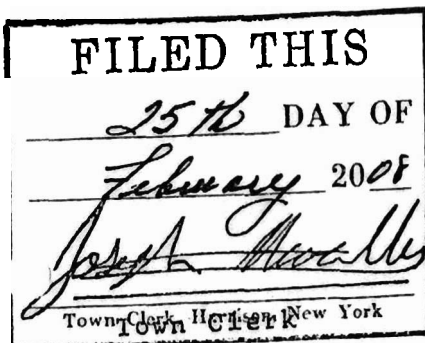 FILED THIS
25th DAY OF
February 2008
Joseph
Town Clerk Harrison, New York
Town Clerk